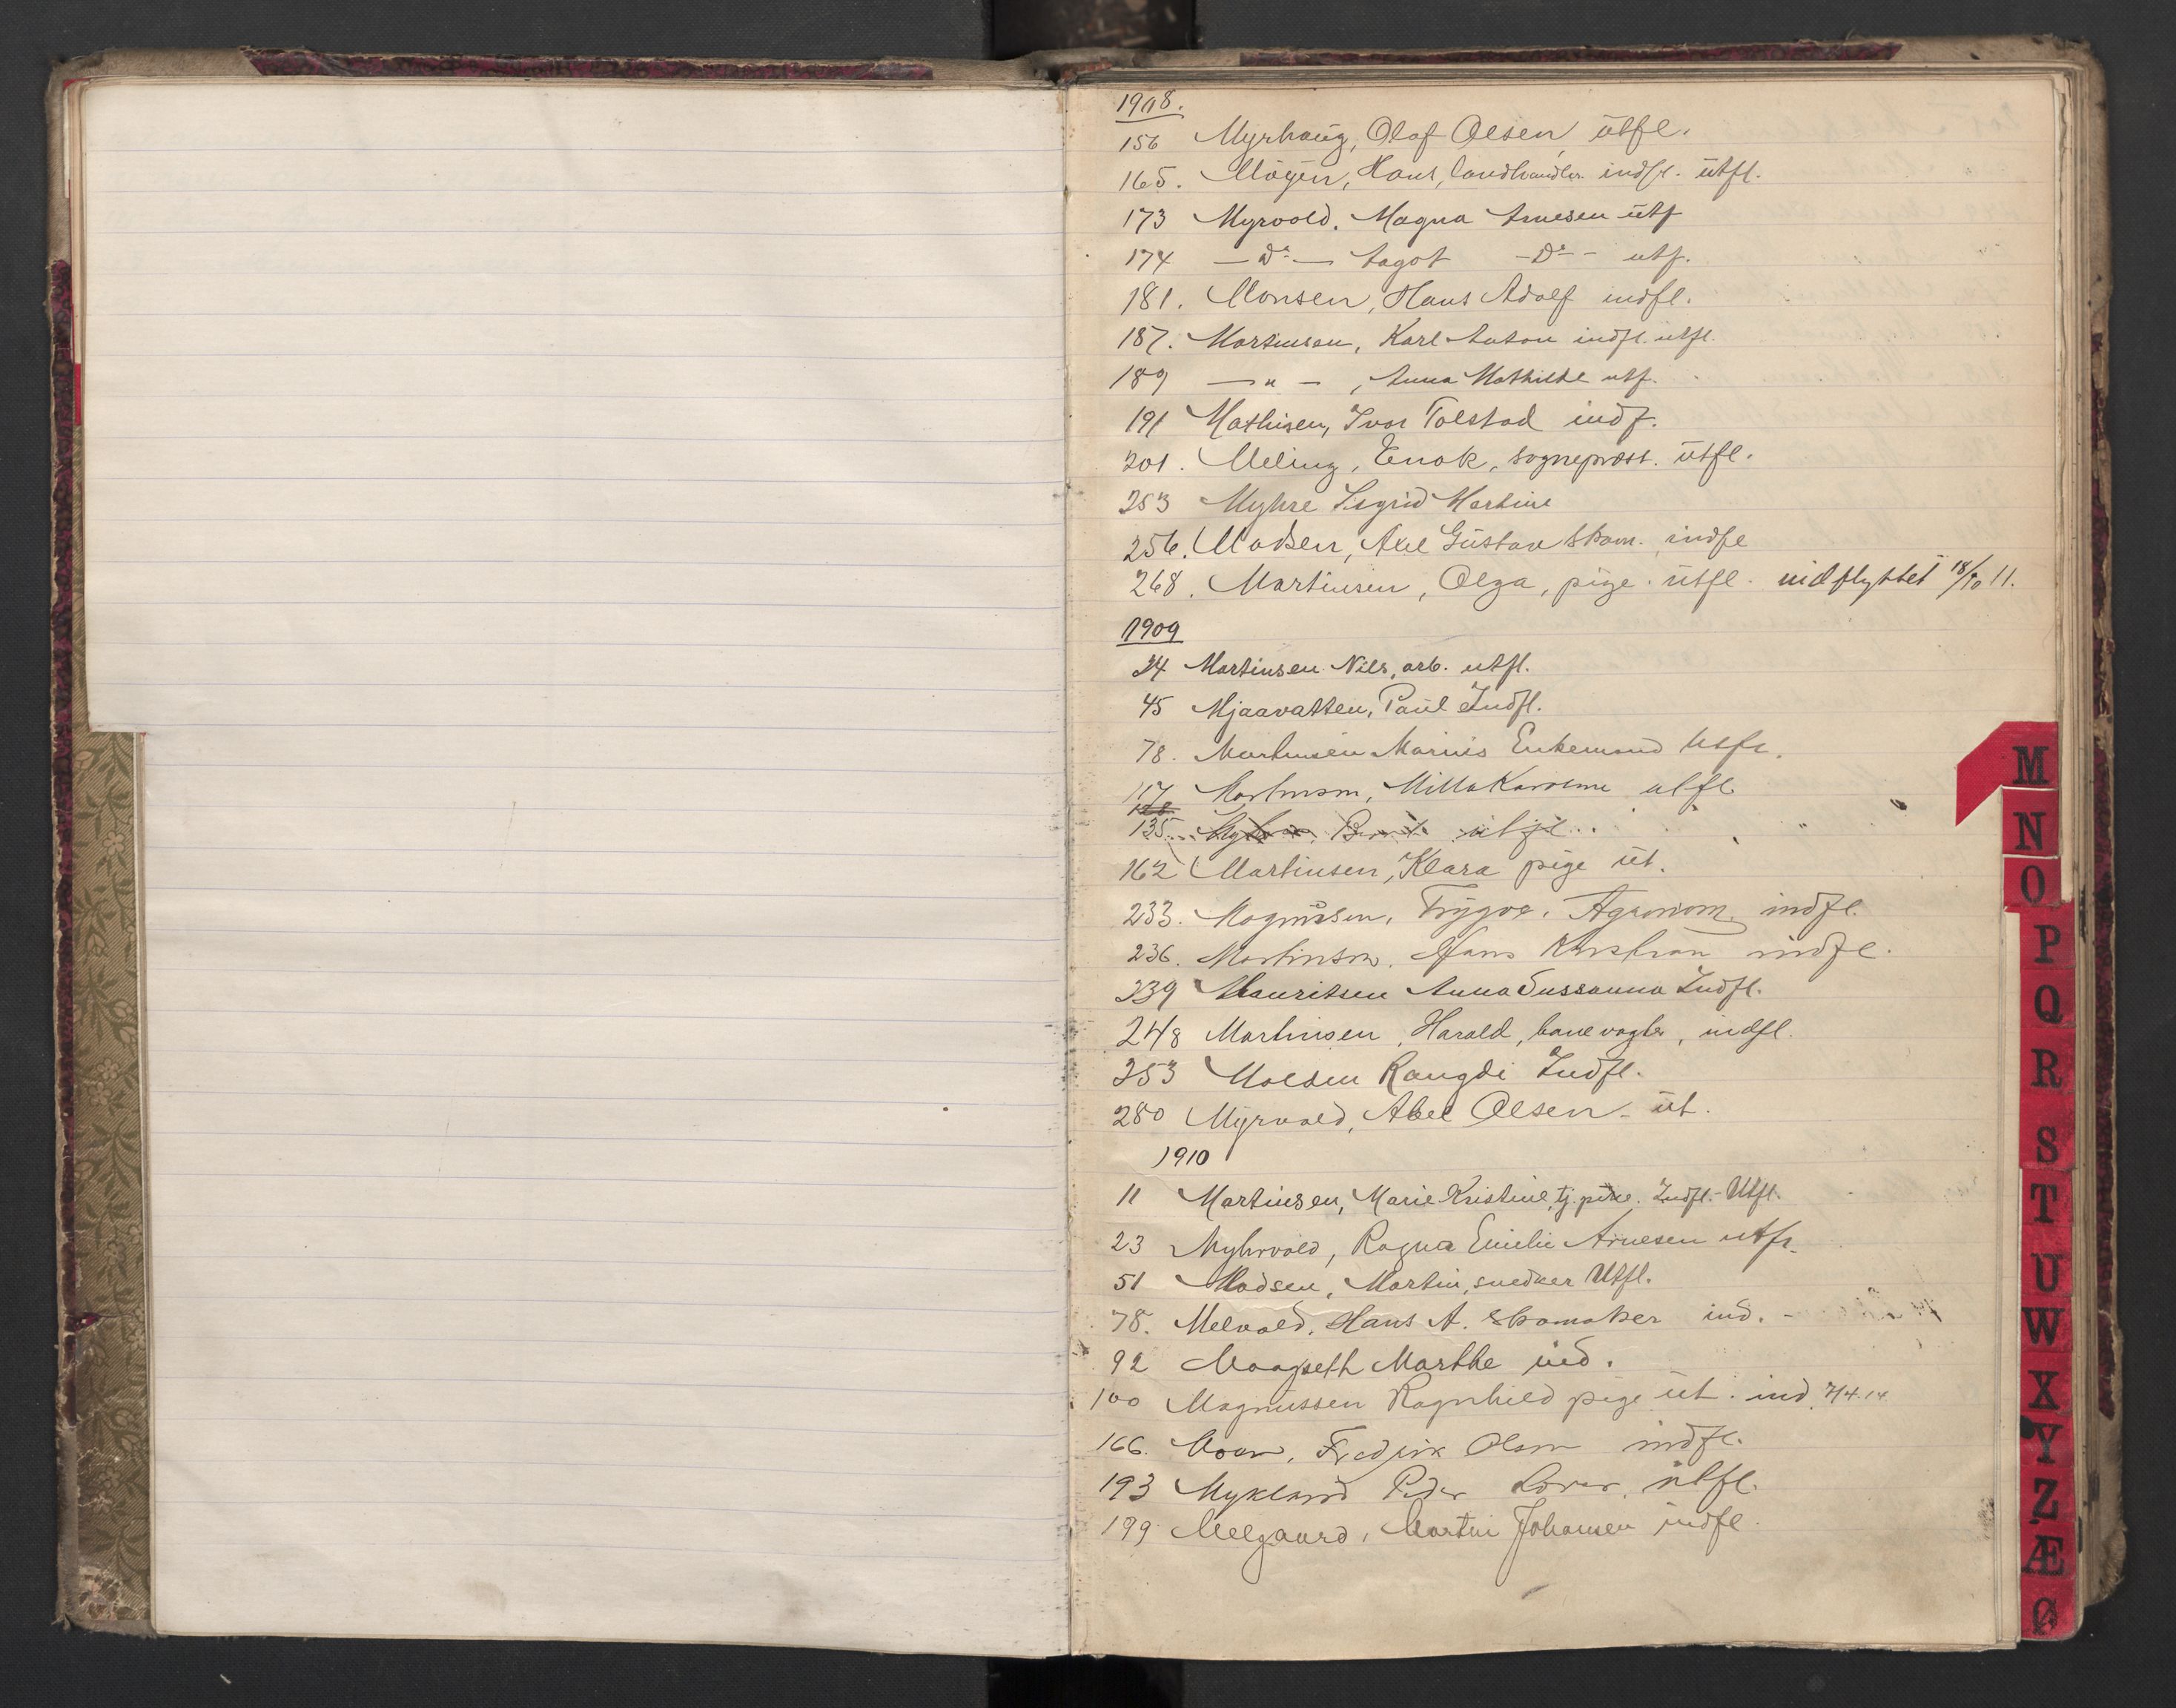 1908.
156 Myrhaug, Olaf Olsen, utfl.
165. Mögen, Hans, landhandler indfl. utfl.
173 Myrvold, Magna Arnesen utf
174 — do — Aagot — Do — utf.
181. Monsen, Hans Adolf indfl.
187. Martinsen, Karl Anton indfl. utfl.
189 — " — , Anna Mathilde utf.
191 Mathisen, Ivar Tolstad indf.
201. Meling, Enok, sogneprest. utfl.
253 Myhre Sigrid Martine
256. Madsen, Axel Gustav skom. indfl
268. Martinsen, Olga, pige. utfl. indflyttet 18/10 11.
1909
24 Martinsen Nils, arb. utfl.
45 Mjaavatten, Paul Indfl.
78. Martinsen Marius Enkemand Utfl.
117 Martinsen, Milla Karoline utfl
135 utfl.
162 Martinsen, Klara pige ut.
233. Magnusen, Trygve, Agronom. indfl.
236. Martinsen, Hans Kristian indfl.
239 Mauritsen Anna Sussanna Indfl.
248 Martinsen, Harald, banevogter, indfl.
253 Moldsu Rangdi Indfl.
280 Myrvold, Abel Olsen - ut.
1910
11 Martinsen, Marie Kristine, tj. pike. Indfl. - Utfl.
23 Myhrvold, Ragna Emilie Arnesen utfl.
51 Madsen, Martin, snedker Utfl.
78. Melvold, Hans A. skomaker ind. -
92 Maagseth Marthe ind.
100 Magnussen Ragnhild pige ut. ind. 7/4.14
166. Moen, Fredrik Olsen indfl.
193 Mykland Peder utfl.
199 Melgaard, Martin Johansen indfl.
M
N
O
P
Q
R
S
T
U
W
X
Y
Z
Æ
Ø